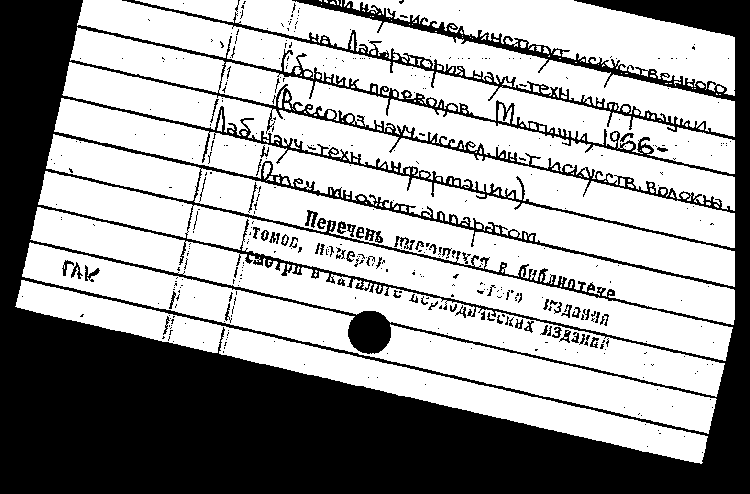 науч-исслед. институт искусственного
на. Лаборатория науч.-техн. информации.
Сборник переводов. Мытищи, 1966-
(Всесоюз. науч-исслед. ин-т искусств. волокна.
Лаб. науч-техн. информации).
Отпеч. множит. аппаратом.
Перечень имеющихся в библиотеке
томов, номеров, этого издания
смотри в каталоге периодических изданий
ГАК